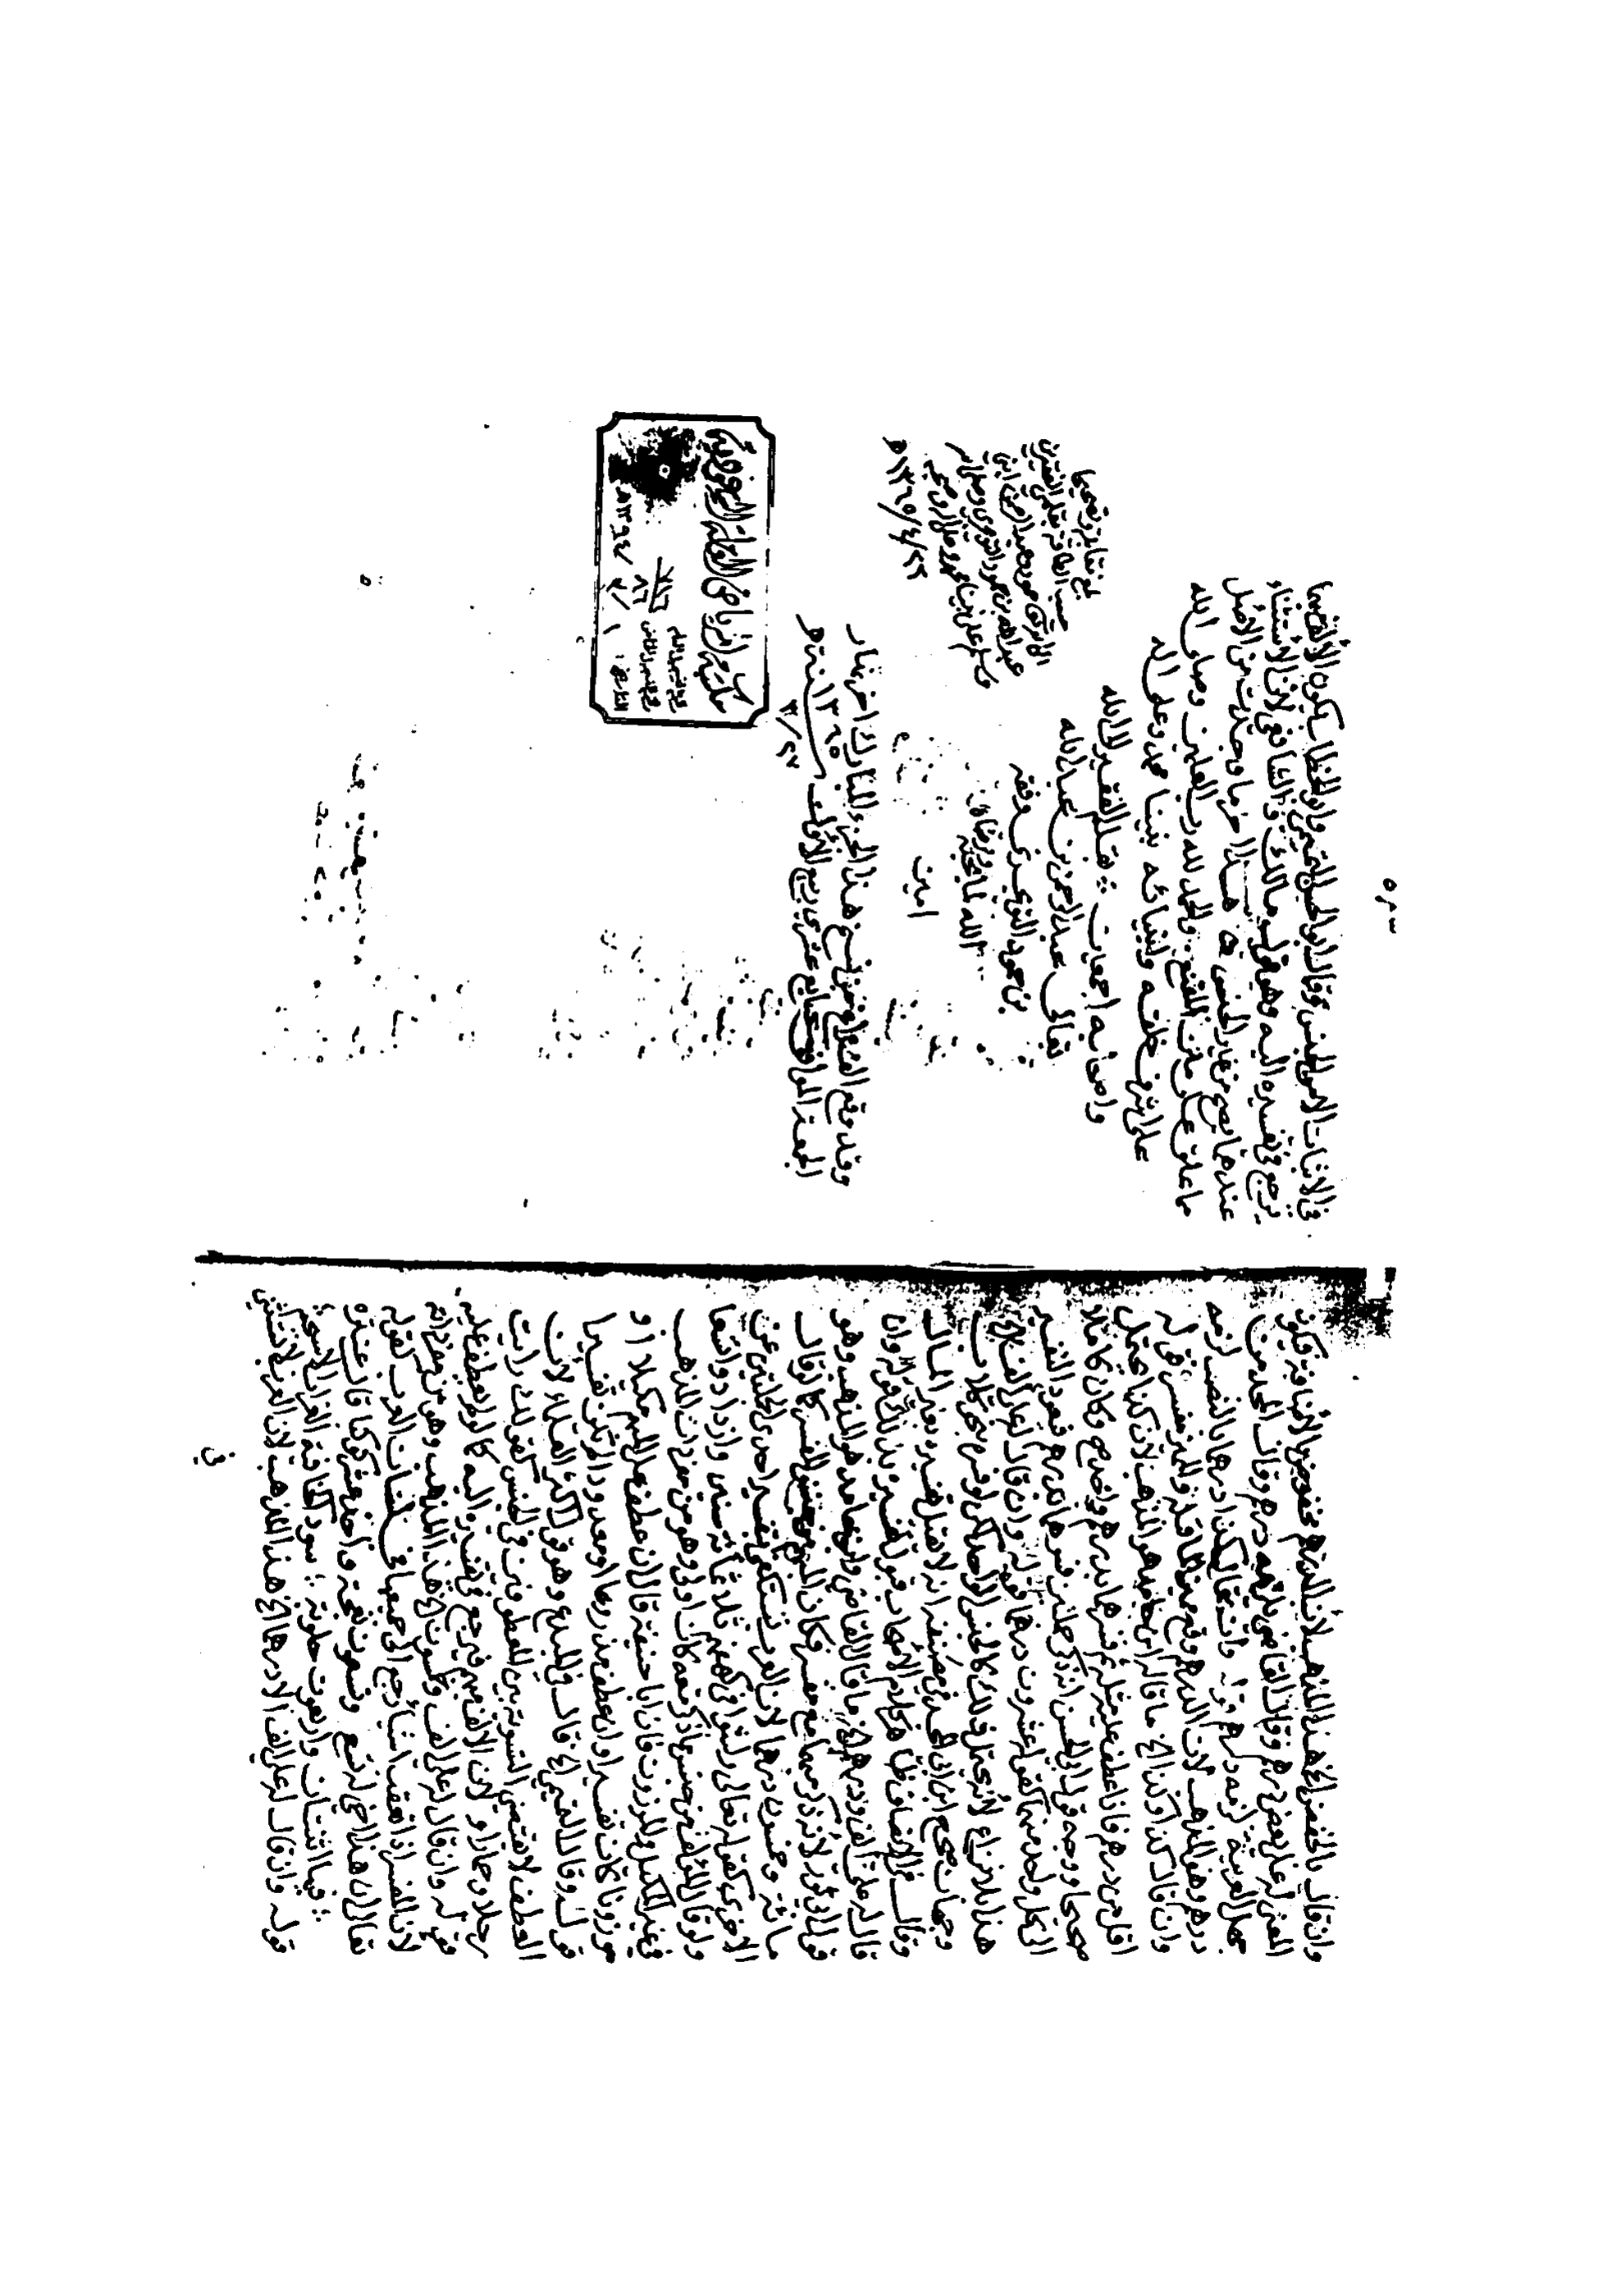 وان قال بالخفض الخ هذا المذهب لأن الدرهم مخفوض بالأضافة فيكون
المعنى له علي بعض درهم وقال القاضي يلزمه درهم وقال المجد من
جهل العربية لزمه درهم قوله وان قال كذا درهما بالنصب لزمه
درهم وهو المذهب لأن الدرهم وقع مميزا لما قبله والمميز مفسر قوله
وان قال كذا وكذا الخ ما قاله ابن حامد هو المذهب لأن كذا يحتمل
اقل من درهم فاذا عطف عليه مثله ثم فسرهما بدرهم واحد جاز وكان كلاما
صحيحا وجه قول ابي الحسن انه ذكر جملتين فسرهما بدرهم فيعود التفسير
الى كل واحد منهما كقوله عشرون درهما قوله وان قال له علي الف الخ
هذا بلا نزاع لأنه يحتمل ذلك لكن لو فسره بنحو كلاب
وجهان صحح ابن ابي المجد في مصنفه انه لا يقبل تفسيره بغير المال
وقال في الأنصاف ظاهر كلام الأصحاب قبول تفسيره بذلك قوله وان
قال له علي الف ودرهم الخ ما قاله القاضي وابن حامد هو المذهب وهو
قول ابي ثور لأنه ذكر مبهما مع مفسر فكان المبهم من جنس المفسر كما لو قال
مائة وخمسون درهما لأن العرب تكتفي بتفسير احدى الجملتين عن
الاخرى كقوله تعالى ولبثوا في كهفهم ثلاثمائة سنين وازدادوا تسعا
ولو قال الالف من جنس ما ذكر معه كان اولى وهو من مفردات المذهب
في غير المكيل والموزون فان ابا حنيفة قال ان عطف على المبهم مكيلا او
موزونا كان تفسيرا وان عطف مذروعا او معدودا لم يكن تفسيرا
قوله وقال التميمي الخ قال في المبدع وهو قول اكثر العلماء لأن
العطف لا يقتضي التسوية بين المعطوفين في الجنس كقولك رايت
رجلا وحمارا ولأن الالف مبهم فيرجع في تفسيره اليه كما لو لم يعطف عليه
قوله وان قال له علي الف وخمسون الخ هذا المذهب وهو من مفرداته
لأن المفسر اذا تعقب اشياء رجع الى جميعها في لسان العرب لقوله
تعالى ان هذا اخي له تسع وتسعون نعجة واحد عشر كوكبا قال عنترة
فيها اثنتان واربعون حلوبة سودا كخافية الغراب الأسحم
قوله وان قال له علي الف الا درهما الخ هذا المذهب لأن العرب لا تستثني
في
في الأثبات الا من الجنس وقال ابو الحسن التميمي وابو الخطاب يكون الألف مبهما
يرجع في تفسيره اليه وهو قول مالك والشافعي لأن الأستثناء
عندهما يصح من غير الجنس هذا اخر ما وجدت من الأصل
ما علق على متن المقنع والحمد لله رب العالمين وصلى الله
على اشرف خلقه وانبيائه نبينا محمد وعلى اله
واصحابه اجمعين بقلم الفقير الى الله
تعالى عبدالرحمن بن عبدالله
بن حمود التويجري وفقه
الله لما يحبه ويرضاه
امين
بلغ مقابلة وتصحيحا
حسب الطاقة بقلم الفقير
عبدالله بن حمود التويجري
وصلى الله على نبينا محمد وعلى اله وصحبه
٢٢/٤/١٣٦٥هـ
وقد وقع الفراغ من نسخ هذا الجزء المبارك اخر نهار
الجمعة الموافق سابع عشرين ربيع الأول سنة ١٣٦٥هـ
٢٧/٣
مكتبة الرياض العامة السعودية
٨٦
التاريخ